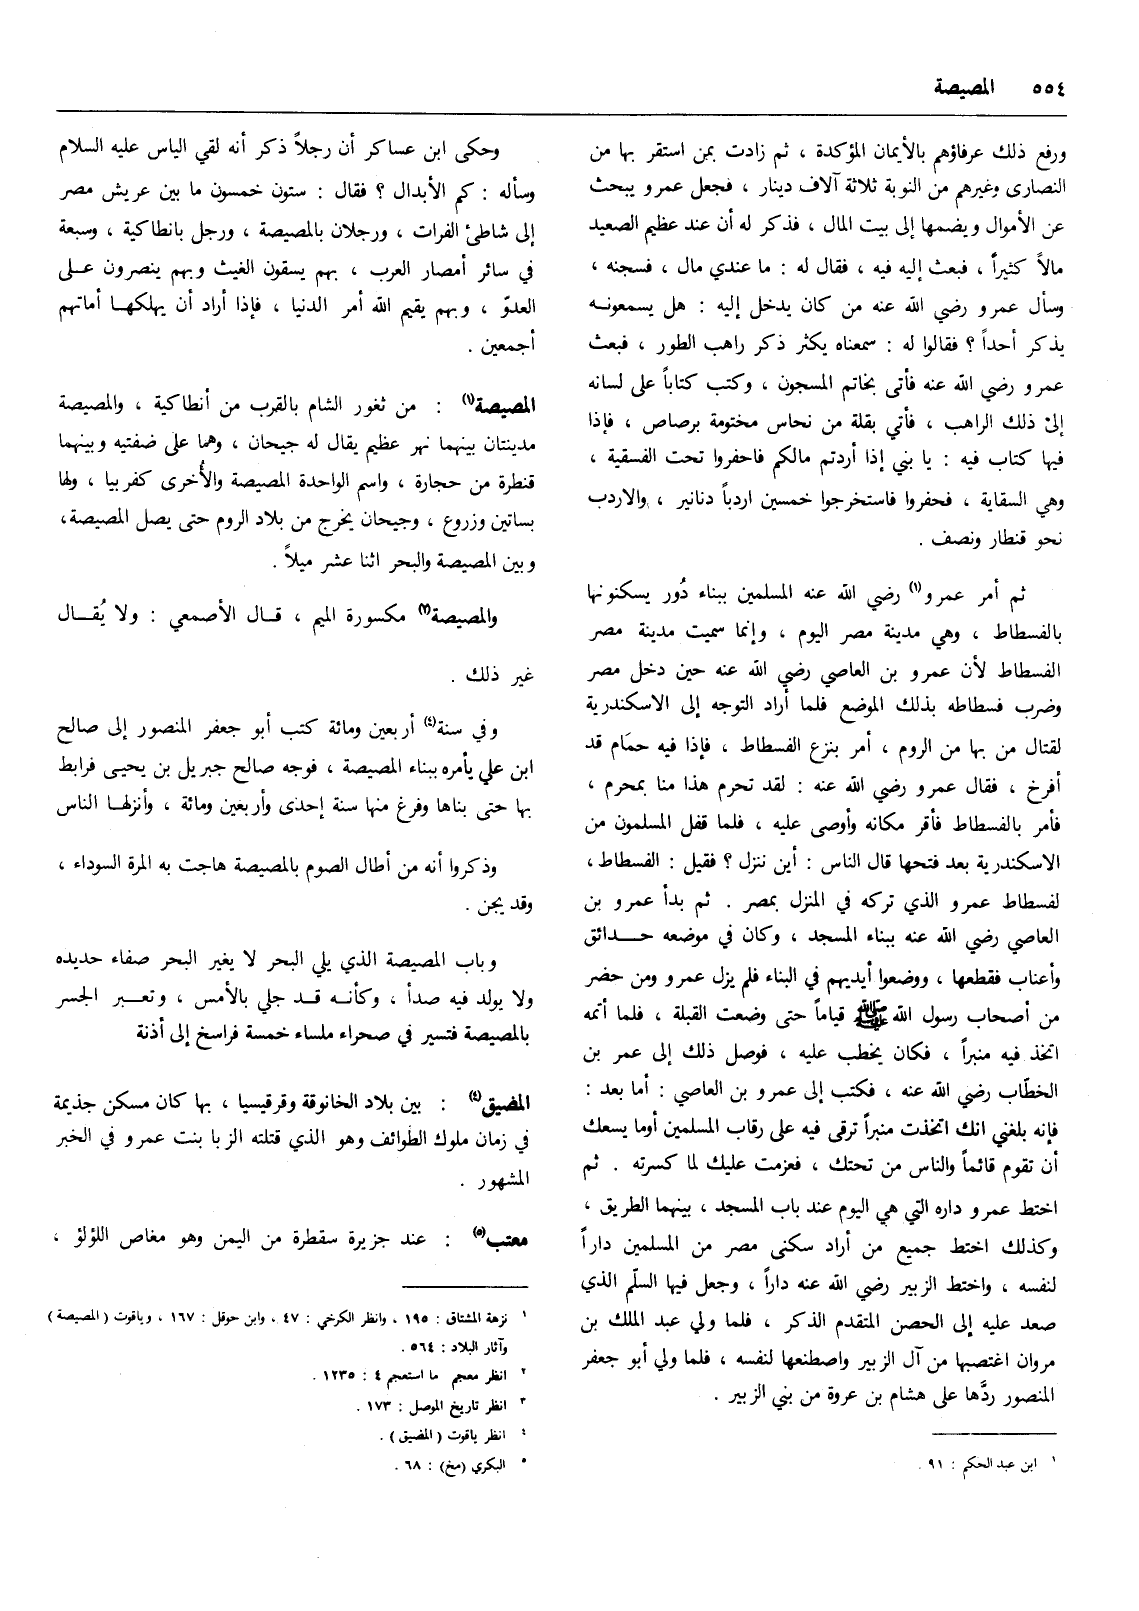 ٥٥٤ المصيصة
ورفع ذلك عرفاؤهم بالأيمان المؤكدة ، ثم زادت بمن استقر بها من
النصارى وغيرهم من النوبة ثلاثة آلاف دينار ، فجعل عمرو يبحث
عن الأموال ويضمها إلى بيت المال ، فذكر له أن عند عظيم الصعيد
مالاً كثيراً ، فبعث إليه فيه ، فقال له : ما عندي مال ، فسجنه ،
وسأل عمرو رضي الله عنه من كان يدخل إليه : هل يسمعونه
يذكر أحداً ؟ فقالوا له : سمعناه يكثر ذكر راهب الطور ، فبعث
عمرو رضي الله عنه فأتى بخاتم المسجون ، وكتب كتاباً على لسانه
إلى ذلك الراهب ، فأتي بقلة من نحاس مختومة برصاص ، فإذا
فيها كتاب فيه : يا بني إذا أردتم مالكم فاحفروا تحت الفسقية ،
وهي السقاية ، فحفروا فاستخرجوا خمسين اردباً دنانير ، والاردب
نحو قنطار ونصف .
ثم أمر عمرو(١) رضي الله عنه المسلمين ببناء دُور يسكنونها
بالفسطاط ، وهي مدينة مصر اليوم ، وإنما سميت مدينة مصر
الفسطاط لأن عمرو بن العاصي رضي الله عنه حين دخل مصر
وضرب فسطاطه بذلك الموضع فلما أراد التوجه إلى الاسكندرية
لقتال من بها من الروم ، أمر بنزع الفسطاط ، فإذا فيه حمَام قد
أفرخ ، فقال عمرو رضي الله عنه : لقد تحرم هذا منا بمحرم ،
فأمر بالفسطاط فأقر مكانه وأوصى عليه ، فلما قفل المسلمون من
الاسكندرية بعد فتحها قال الناس : أين ننزل ؟ فقيل : الفسطاط ،
لفسطاط عمرو الذي تركه في المنزل بمصر . ثم بدأ عمرو بن
العاصي رضي الله عنه ببناء المسجد ، وكان في موضعه حدائق
وأعناب فقطعها ، ووضعوا أيديهم في البناء فلم يزل عمرو ومن حضر
من أصحاب رسول الله ﷺ قياماً حتى وضعت القبلة ، فلما أتمه
اتخذ فيه منبراً ، فكان يخطب عليه ، فوصل ذلك إلى عمر بن
الخطّاب رضي الله عنه ، فكتب إلى عمرو بن العاصي : أما بعد :
فإنه بلغني انك اتخذت منبراً ترقى فيه على رقاب المسلمين أوما يسعك
أن تقوم قائماً والناس من تحتك ، فعزمت عليك لما كسرته . ثم
اختط عمرو داره التي هي اليوم عند باب المسجد ، بينهما الطريق ،
وكذلك اختط جميع من أراد سكنى مصر من المسلمين داراً
لنفسه ، واختط الزبير رضي الله عنه داراً ، وجعل فيها السلّم الذي
صعد عليه إلى الحصن المتقدم الذكر ، فلما ولي عبد الملك بن
مروان اغتصبها من آل الزبير واصطنعها لنفسه ، فلما ولي أبو جعفر
المنصور ردَّها على هشام بن عروة من بني الزبير .
١ ابن عبد الحكم : ٩١ .
وحكى ابن عساكر أن رجلاً ذكر أنه لقي الياس عليه السلام
وسأله : كم الأبدال ؟ فقال : ستون خمسون ما بين عريش مصر
إلى شاطئ الفرات ، ورجلان بالمصيصة ، ورجل بانطاكية ، وسبعة
في سائر أمصار العرب ، بهم يسقون الغيث وبهم ينصرون على
العدوّ ، وبهم يقيم الله أمر الدنيا ، فإذا أراد أن يهلكها أماتهم
أجمعين .
المصيصة(١) : من ثغور الشام بالقرب من أنطاكية ، والمصيصة
مدينتان بينهما نهر عظيم يقال له جيحان ، وهما على ضفتيه وبينهما
قنطرة من حجارة ، واسم الواحدة المصيصة والأُخرى كفربيا ، ولها
بساتين وزروع ، وجيحان يخرج من بلاد الروم حتى يصل المصيصة،
وبين المصيصة والبحر اثنا عشر ميلاً .
والمصيصة(٢) مكسورة الميم ، قال الأصمعي : ولا يُقال
غير ذلك .
وفي سنة(٤) أربعين ومائة كتب أبو جعفر المنصور إلى صالح
ابن علي يأمره ببناء المصيصة ، فوجه صالح جبريل بن يحيى فرابط
بها حتى بناها وفرغ منها سنة إحدى وأربعين ومائة ، وأنزلها الناس
وذكروا أنه من أطال الصوم بالمصيصة هاجت به المرة السوداء ،
وقد يجن .
وباب المصيصة الذي يلي البحر لا يغير البحر صفاء حديده
ولا يولد فيه صدأ ، وكأنه قد جلي بالأمس ، وتعبر الجسر
بالمصيصة فتسير في صحراء ملساء خمسة فراسخ إلى أذنة
المضيق(٤) : بين بلاد الخانوقة وقرقيسيا ، بها كان مسكن جذيمة
في زمان ملوك الطوائف وهو الذي قتلته الزبا بنت عمرو في الخبر
المشهور .
معتب(٥) : عند جزيرة سقطرة من اليمن وهو مغاص اللؤلؤ ،
١ نزهة المشتاق : ١٩٥ ، وانظر الكرخي : ٤٧ ، وابن حوقل : ١٦٧ ، وياقوت ( المصيصة )
وآثار البلاد : ٥٦٤ .
٢ انظر معجم ما استعجم ٤ : ١٢٣٥ .
٣ انظر تاريخ الموصل : ١٧٣ .
٤ انظر ياقوت ( المضيق ) .
٥ البكري (مخ) : ٦٨ .